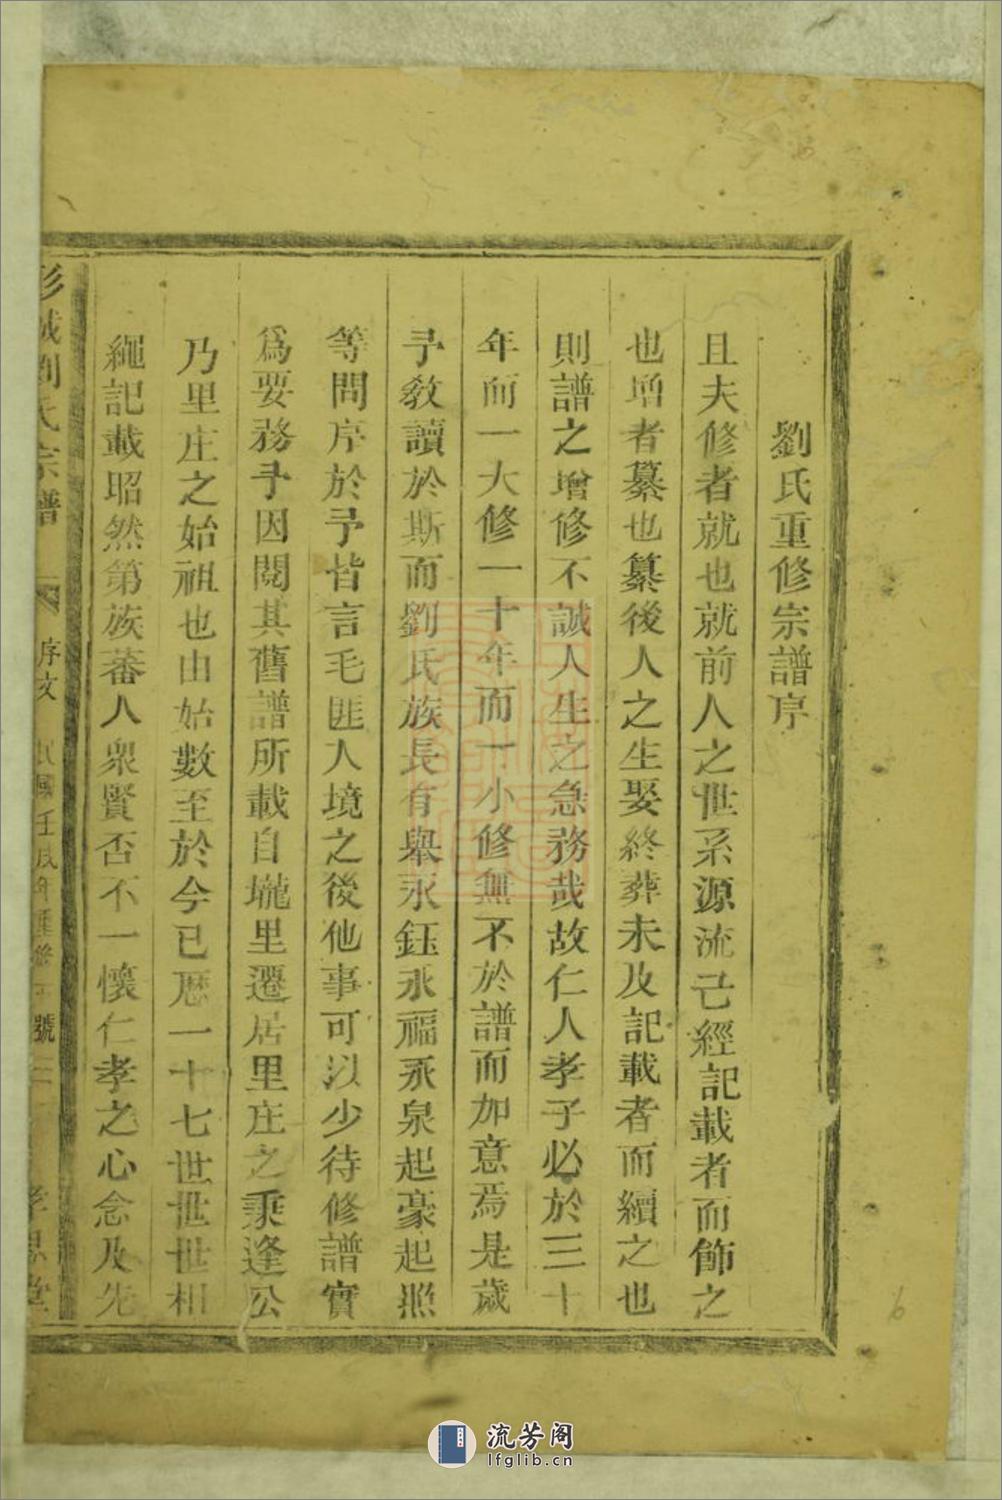 劉氏重修宗譜序
且夫修者就也就前人之世系源流己經記載者而飾之
也增者纂也纂後人之生娶終葬未及記載者而續之也
則譜之增修不誠人生之急務哉故仁人孝子必於三十
年而一大修一十年而一小修無不於譜而加意焉是歲
予教讀於斯而劉氏族長有舉永鈺永福永泉起豪起照
等問序於予皆言毛匪入境之後他事可以少待修譜實
為要務予因閱其舊譜所載自壠里遷居里庄之乘逢公
乃里庄之始祖也由始數至於今已歷一十七世世世相
繩記載昭然第族蕃人衆賢否不一懷仁孝之心念及先
彭城劉氏宗譜 序文 民國壬戌年重修 號 孝思堂
流芳阁
lfglib.cn
6